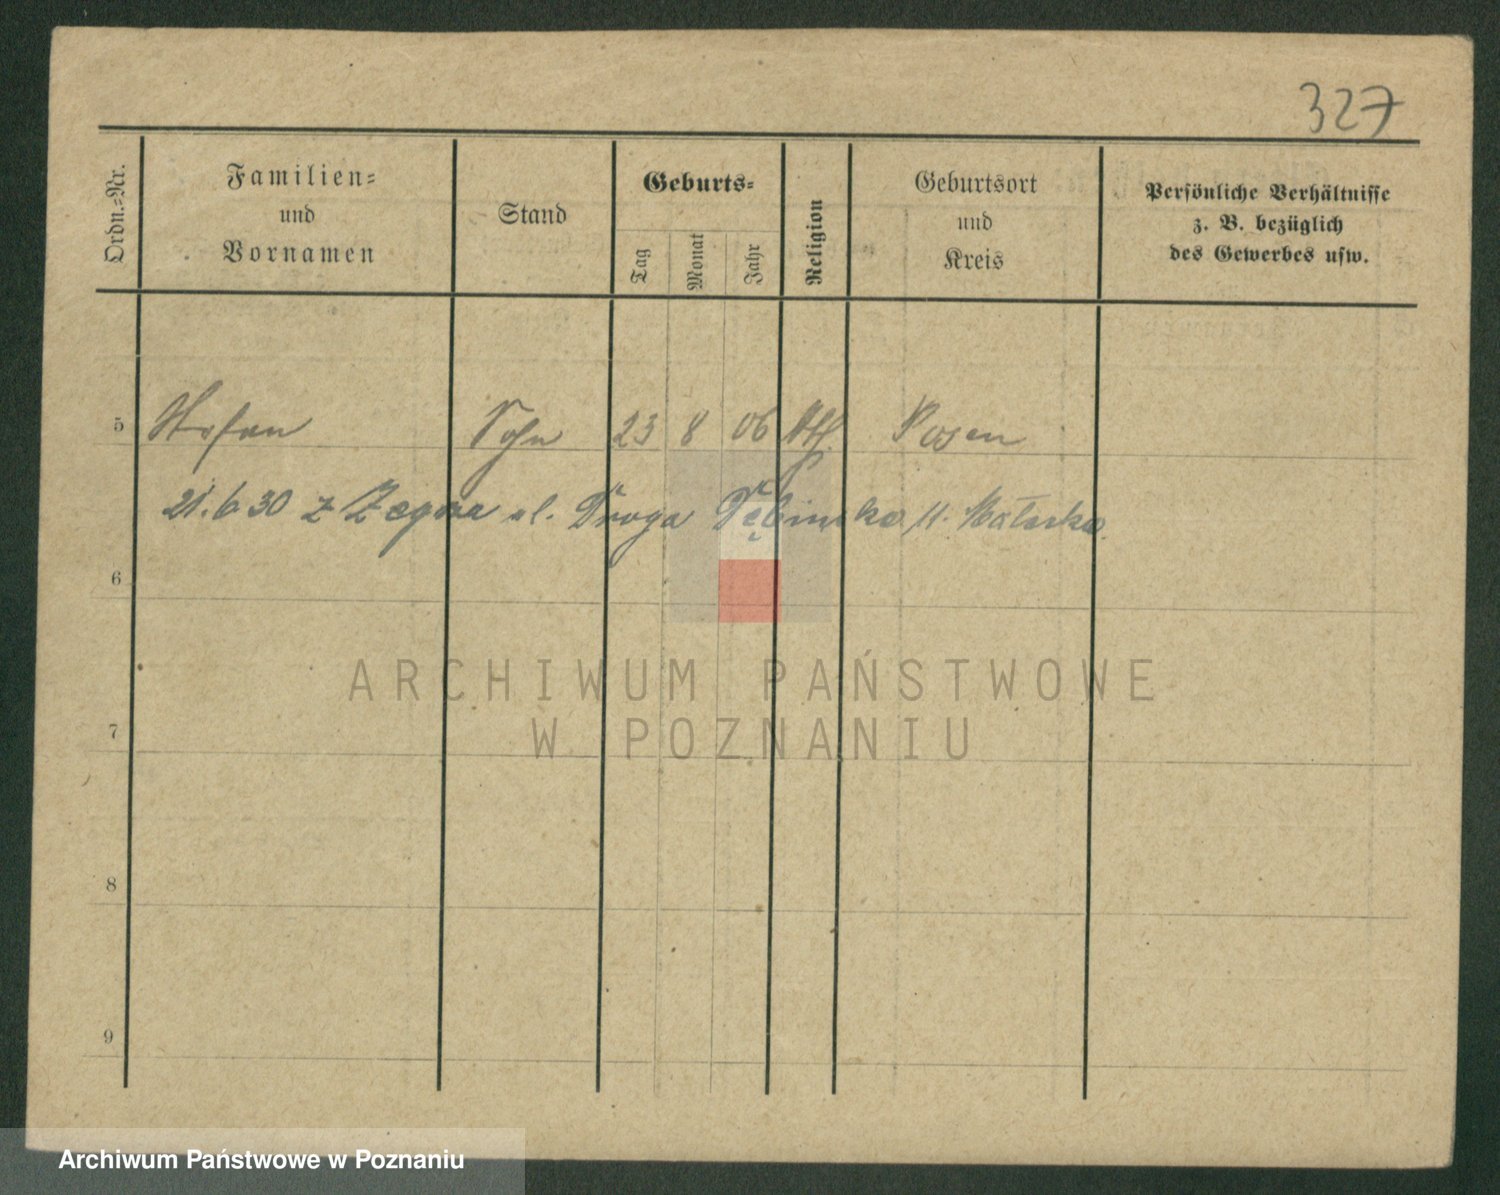 327
Ordn.-Nr.
Familien-
und
Vornamen
Stand
Geburts-
Tag
Monat
Jahr
Religion
Geburtsort
und
Kreis
Persönliche Verhältnisse
z. B. bezüglich
des Gewerbes usw.
5 Stefan Sohn 23 8 06 kth Posen
21.6.30 z Żegrza ul. Droga Dębinska 11.
6
7
8
9
ARCHIWUM PAŃSTWOWE
W POZNANIU
Archiwum Państwowe w Poznaniu